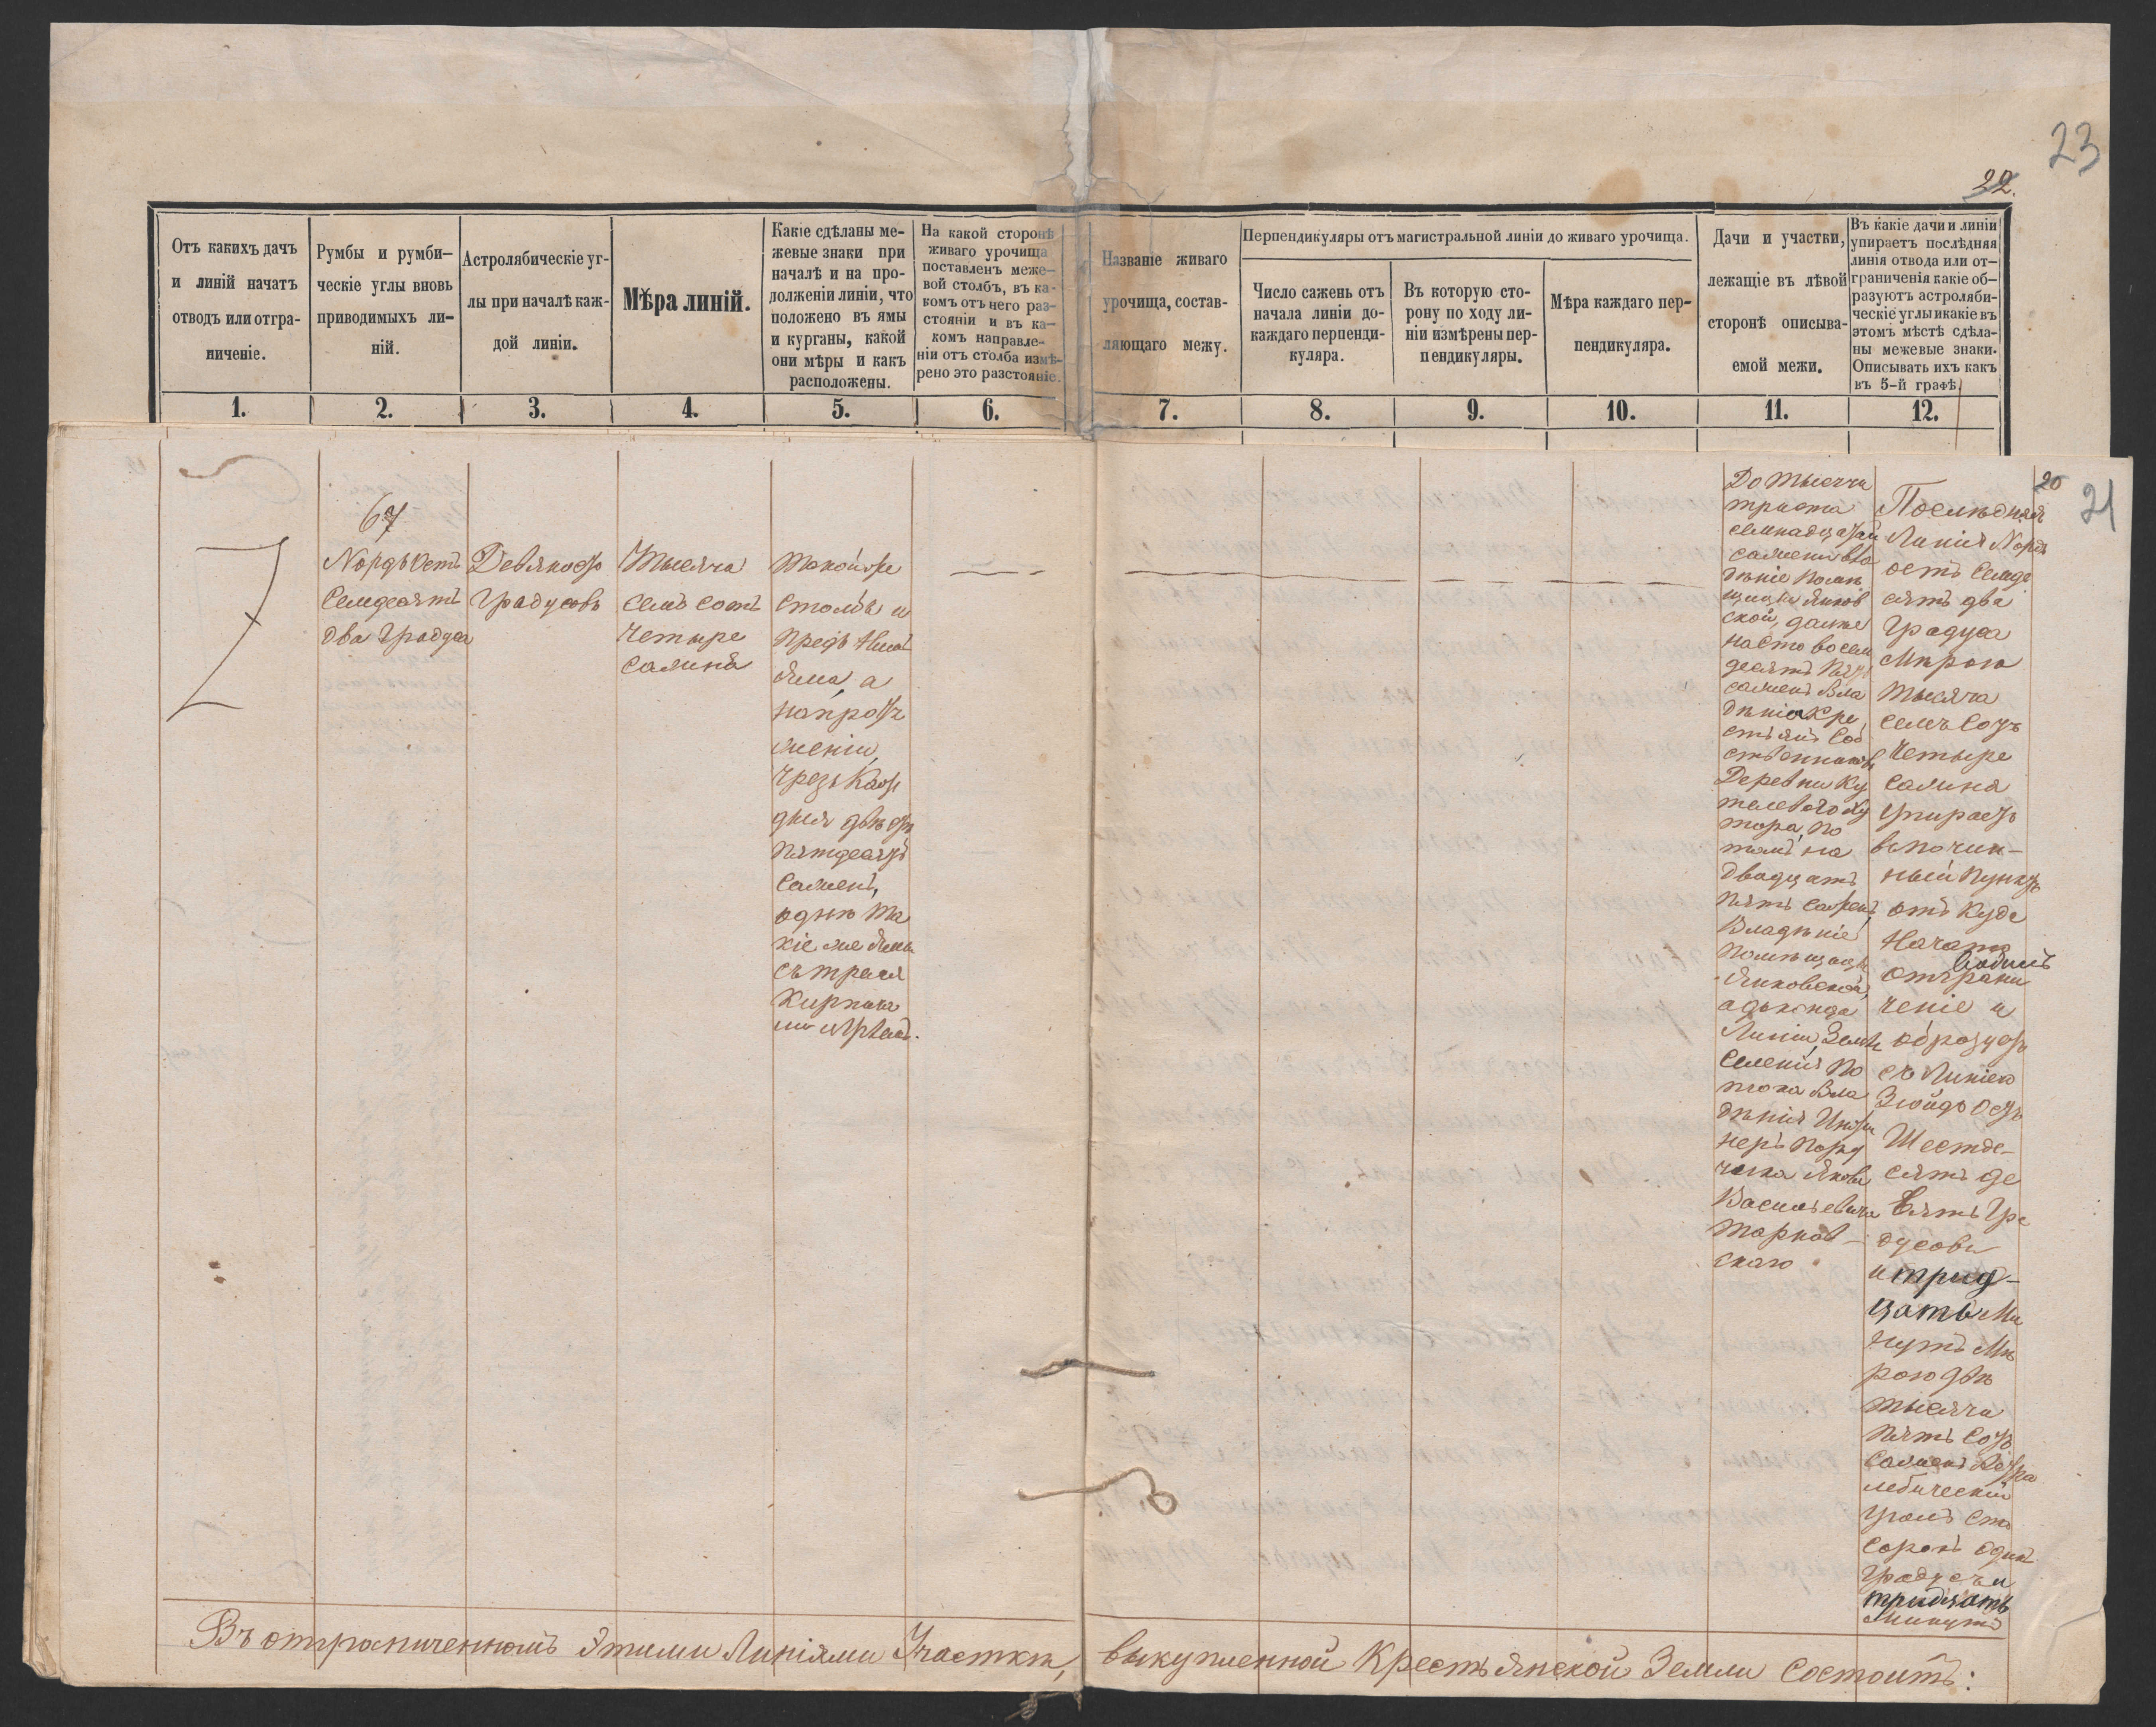 23
22.
Отъ какихъ дачъ
и линій начатъ
отводъ или отгра-
ниченіе.
Румбы и румби-
ческіе углы вновь
приводимыхъ ли-
ній.
Астролябическіе уг-
лы при началѣ каж-
дой линіи.
Мѣра линій.
Какіе сдѣланы ме-
жевые знаки при
началѣ и на про-
долженіи линіи, что
положено въ ямы
и курганы, какой
они мѣры и какъ
расположены.
На какой сторонѣ
живаго урочища
поставленъ меже-
вой столбъ, въ ка-
комъ отъ него раз-
стояніи и въ ка-
комъ направле-
ніи отъ столба измѣ-
рено это разстояніе.
Названіе живаго
урочища, состав-
ляющаго межу.
Перпендикуляры отъ магистральной линіи до живаго урочища.
Число сажень отъ
начала линіи до
каждаго перпенди-
куляра.
Въ которую сто-
рону по ходу ли-
ніи измѣрены пер-
пендикуляры.
Мѣра каждаго пер-
пендикуляра.
Дачи и участки,
лежащіе въ лѣвой
сторонѣ описыва-
емой межи.
Въ какіе дачи и линіи
упираетъ послѣдняя
линія отвода или от-
граниченія какіе об-
разуютъ астроляби-
ческіе углы и какіе въ
этомъ мѣстѣ сдѣла-
ны межевые знаки.
Описывать ихъ какъ
въ 5-й графѣ.
1. 2. 3. 4. 5. 6. 7. 8. 9. 10. 11. 12.
20
21
67
Нордъ Остъ
Семдесятъ
два градуса
Девяносто
градусовъ
Тысяча
семь сотъ
четыре
сажна
Такой же
столбъ и
предъ нимъ
яма, а
на продол
женіи
чрезъ каж
дыя двѣсти
пятдесятъ
сажень,
однѣ та
кіе же ямы
съ тремя
кирпича
ми
До тысячи
триста
семнадцати
сажени вла
дѣніе помѣ
щицы Янов
ской, далѣе
на сто восем
десятъ пять
сажень вла
дѣніе кре
стьянъ соб
ственниковъ
Деревни Ку
телеваго Ху
тора, по
томъ на
двадцать
пять сажень
Владѣніе
помѣщицы
Яновской,
а до конца
Линіи, Земля
селенія По
тока вла
дѣнія Инже
неръ Пору
чика Якова
Васильевича
Тарнов-
скаго
Послѣдняя
Линія Нордъ
остъ семде
сятъ два
градуса
мѣрою
тысяча
семь сотъ
четыре
сажна
упираетъ
въ почин-
ный пунктъ
отъ куда
начато
отграни
ченіе и
образуетъ
съ Линіею
Зюйдъ Остъ
Шестде-
сятъ де
вять гра
дусовъ
и трид-
цать ми
нутъ мѣ
рою двѣ
тысячи
пять сотъ
сажень Астра
лябическій
уголъ сто
сорокъ одинъ
градусъ и
тридцать
минутъ
Въ отграниченномъ этими Линіями Участкѣ, выкупленной Крестьянской Земли состоитъ: